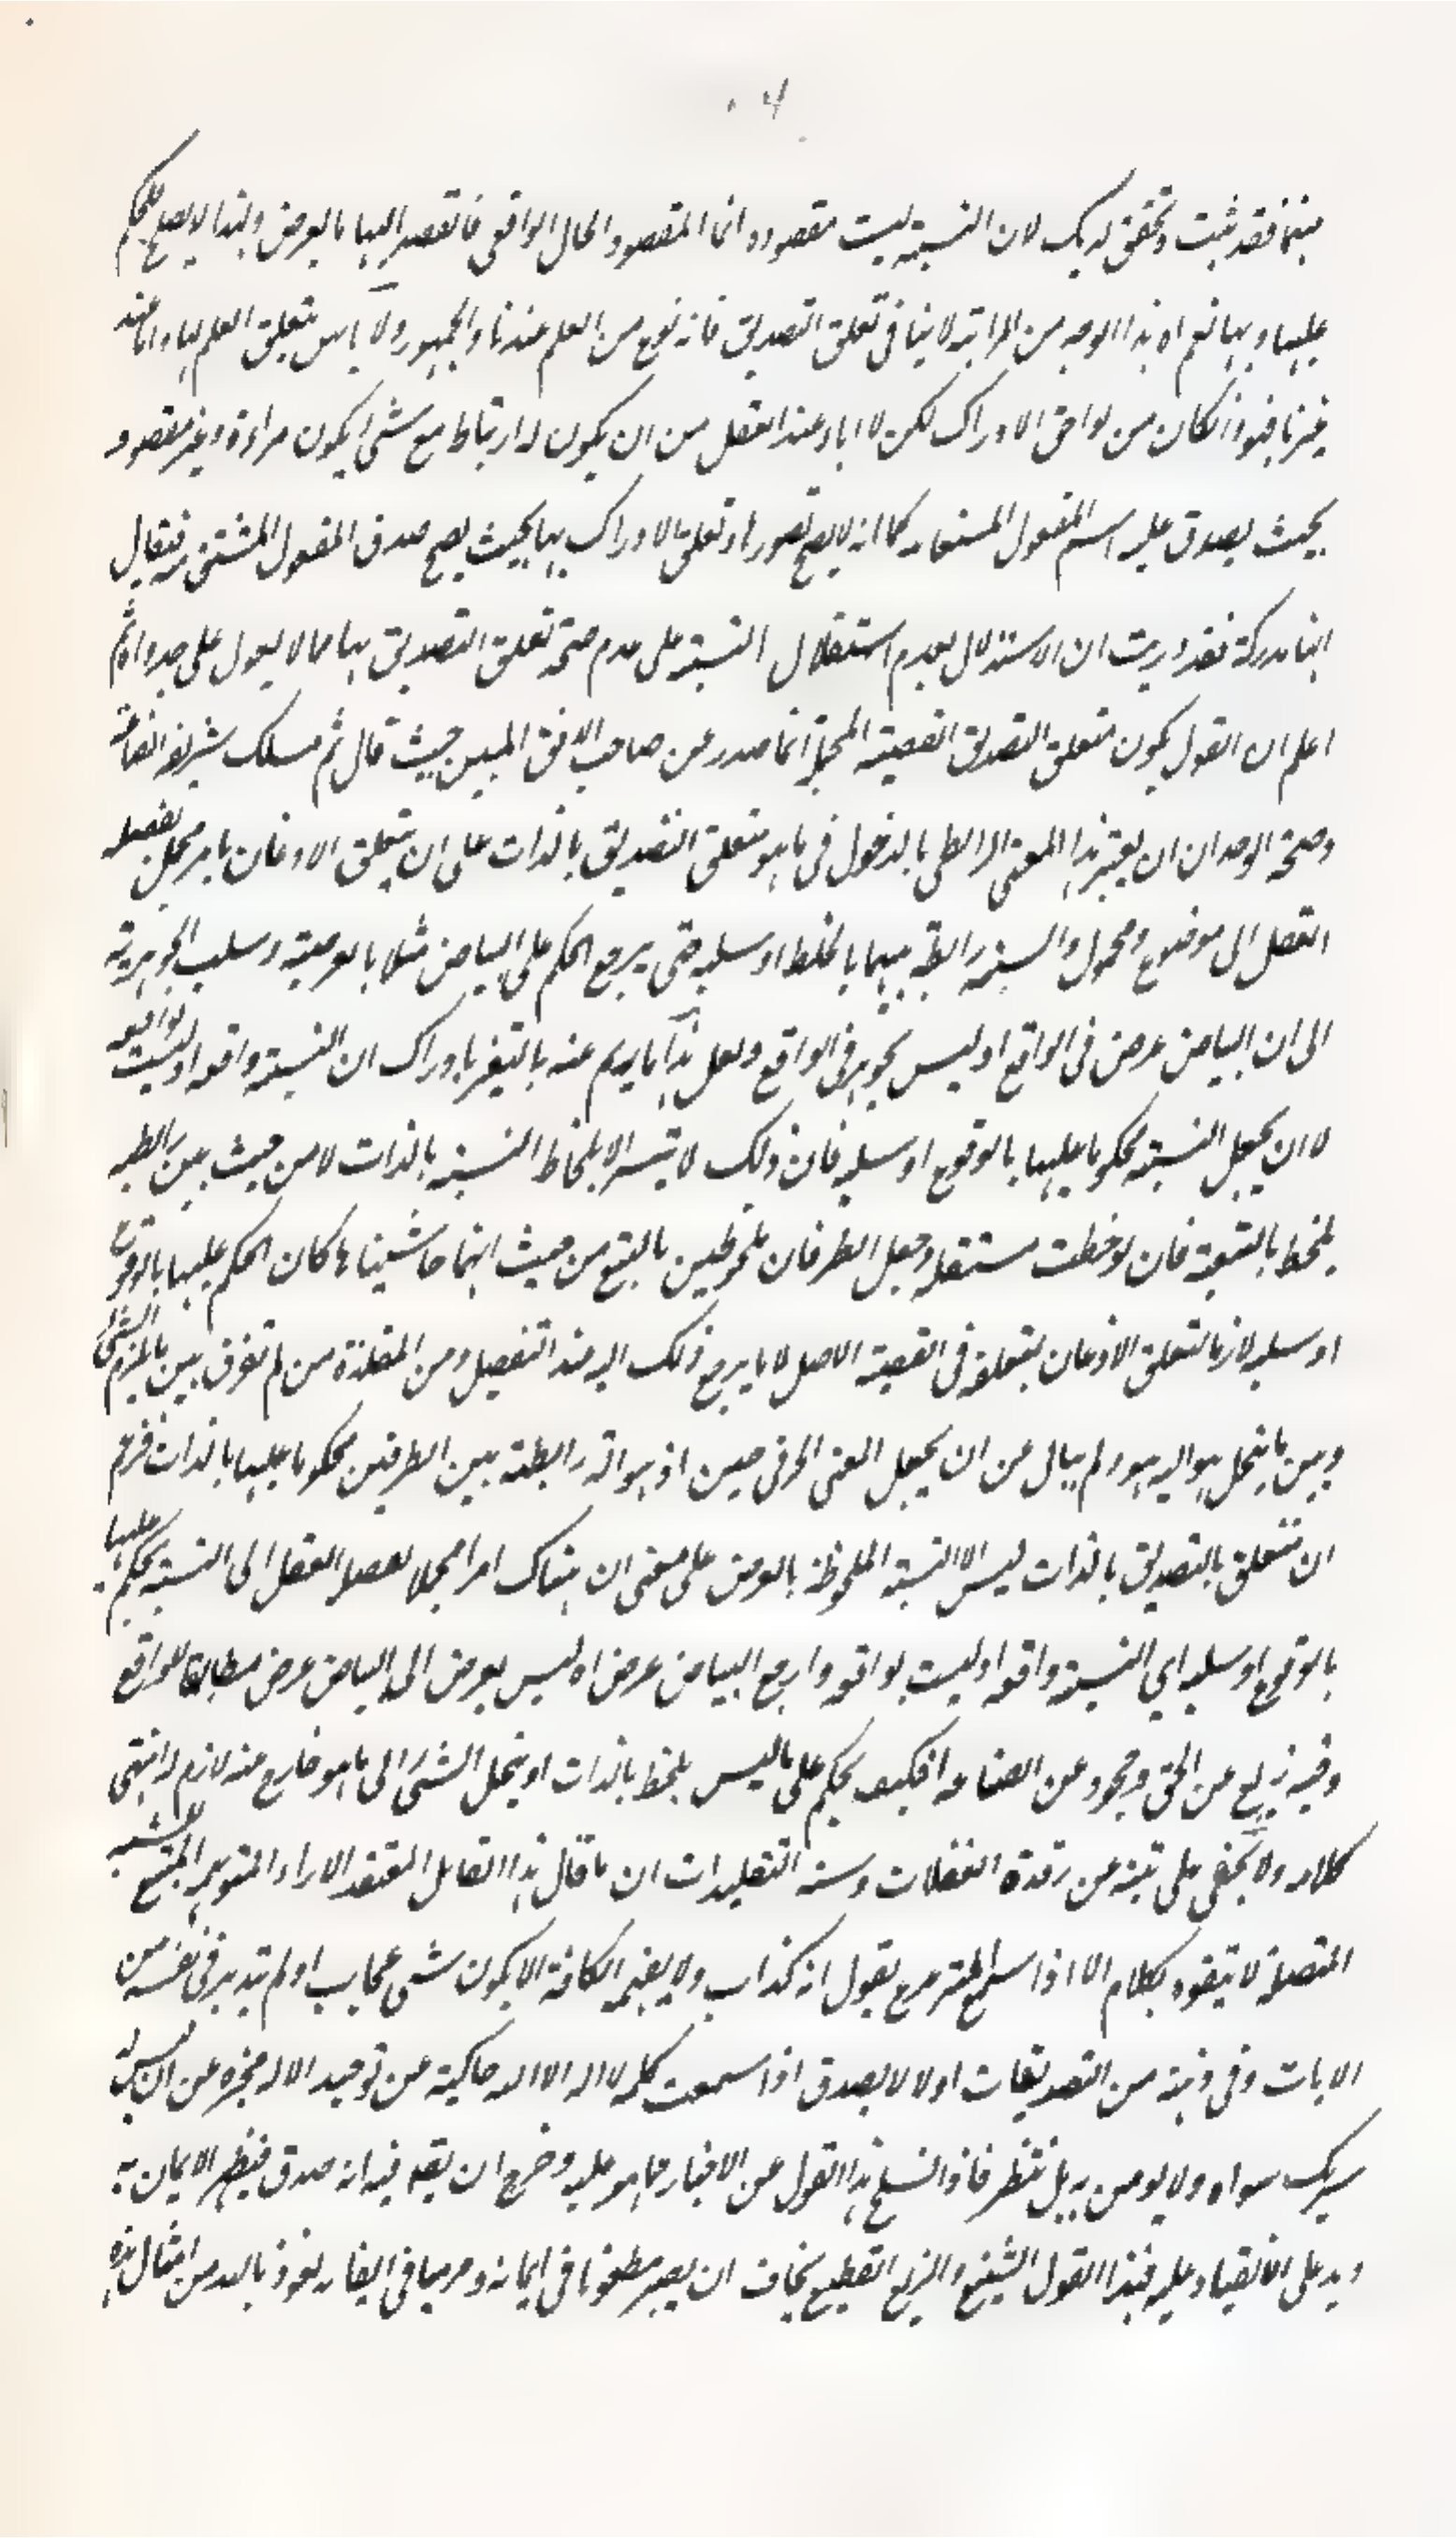 فقد ثبت وتحقق لديك لان النسبة ليست مقصوده انما المقصود الحال الواقعى فالقصد اليها بالعرض ولهذا لا يصلح للحكم
عليها وبها نعم ان هذا الوجه من المراتية لا ينافى تعلق التصديق فانه نوع من العلم عندنا والجمهور ولا باس بتعلق العلم بها واما عند
غيرنا فهو وان كان من لواحق الادراك لكن لا اباء عند العقل من ان يكون له ارتباط مع شئ يكون مراءة وغير مقصود
بحيث يصدق عليه اسم المفعول المستعار كما انه لا يصح تصور او تعلق الادراك بها بحيث يصح صدق المفعول المشتق منه فيقال
انها مدركة فقد دريت ان الاستدلال بعدم استقلال النسبة على عدم صحة تعلق التصديق بها مما لا يعول على جدواه ثم
اعلم ان القول بكون متعلق التصديق القضية المجملة انما صدر عن صاحب الافق المبين حيث قال ثم مسلك شريف الصناعة
وصحة الوجدان ان يعتبر هذا المعنى الرابطى بالدخول فى ما هو متعلق التصديق بالذات على ان يتعلق الاذعان بامر مجمل يفصله
العقل الى موضوع ومحمول والنسبة رابطة بينهما بالخلط او سلبه حتى يرجع الحكم على البياض مثلا بالعرضية وسلب الجوهرية
الى ان البياض عرض فى الواقع او ليس بجوهر فى الواقع ولعل هذا ما يرام عنه بالتعبير بادراك ان النسبة واقعة او ليست بواقعه
لا ان يجعل النسبة محكوما عليها بالوقوع او سلبه فان ذلك لا يتيسر الا بلحاظ النسبة بالذات لا من حيث هى رابطه
يلحظ بالتبعية فان لوحظت مستقلة وجعل الطرفان ملحوظين بالتبع من حيث انهما حاشيتاها كان الحكم عليها بالوقوع
او سلبه لازما لتعلق الاذعان بمتعلقه فى القضية الاصل لا ما يرجع ذلك اليه عند التفصيل ومن المقلدة من لم يفرق بين ما يلزم الشئ
وبين ما ينحل هو اليه هو ولم يبال عن ان يجعل المعنى الحرفى حين اذ هو اته رابطة بين الطرفين محكوما عليها بالذات فزعم
ان متعلق بالتصديق بالذات ليس الا النسبة الملحوظة بالعرض على معنى ان هناك امرا مجملا يفصله العقل الى النسبة يحكم عليها
بالوقوع او سلبه اى النسبة واقعة او ليست بواقعة وارجع البياض عرض او ليس بعرض الى البياض عرض مطابق للواقع
وفيه زيغ عن الحق وجحود عن الصناعه افكيف يحكم على ما ليس يلحظ بالذات او ينحل الشئ الى ما هو خارج عنه لازم له انتهى
كلامه ولا يخفى على تنبه عن رقدة الغفلات وسنة التقليدات ان ما قال هذا القائل المعتقد الاراء المتوهم المتبع
لا يتفوه بكلام الا اذا يقول انه كذاب ولا الكافة الا بكون شئ عجاب او لم يتدبر فى نفسه من
الايات وفى ذمته من التصديقات اولا لا يصدق اذا سمعت كلمه لا اله الا الله حاكية عن توحيد الاله مخبره عن ان ليس له
شريك سواه ولا يومن به بل ينتظر فاذا انسلخ هذا القول عن الاخبار عما هو عليه وخرج ان يقع فيه انه صدق فيظهر الايمان به
ويدعى الانقياد عليه فهذا القول الشنيع والزيغ القطيع يخاف ان يصير مطعونا فى ايمانه نعوذ بالله من امثال هذه